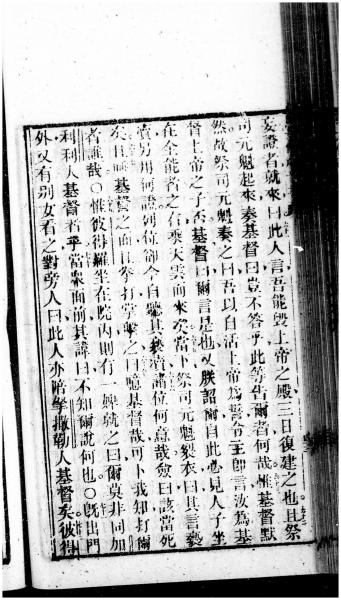 妄證者就來曰此人言吾能毀上帝之殿三日復建之也且祭
司元魁起來奏基督曰豈不答乎此等告爾者何哉惟基督默
然故祭司元魁奏之曰吾以自活上帝爲誓令主即言汝為基
督上帝之子否基督曰爾言是也又朕詔爾自此必見人子坐
在全能者之右乘天雲而來次當下祭司元魁裂衣曰其言褻
瀆另用何證列位節今自聽其褻瀆諸位何意哉僉曰該當死
矣日唾基督之面且拳打掌擊之曰噫是督哉可卜我知打爾
者誰哉〇惟彼得羅坐在院內則有一婢就之曰爾莫非同加
利利人基督者乎當衆面前其諱曰不知爾說何也〇既出門
外又有別女看之對旁人曰此人亦陪拿撒勒人基督矣彼得